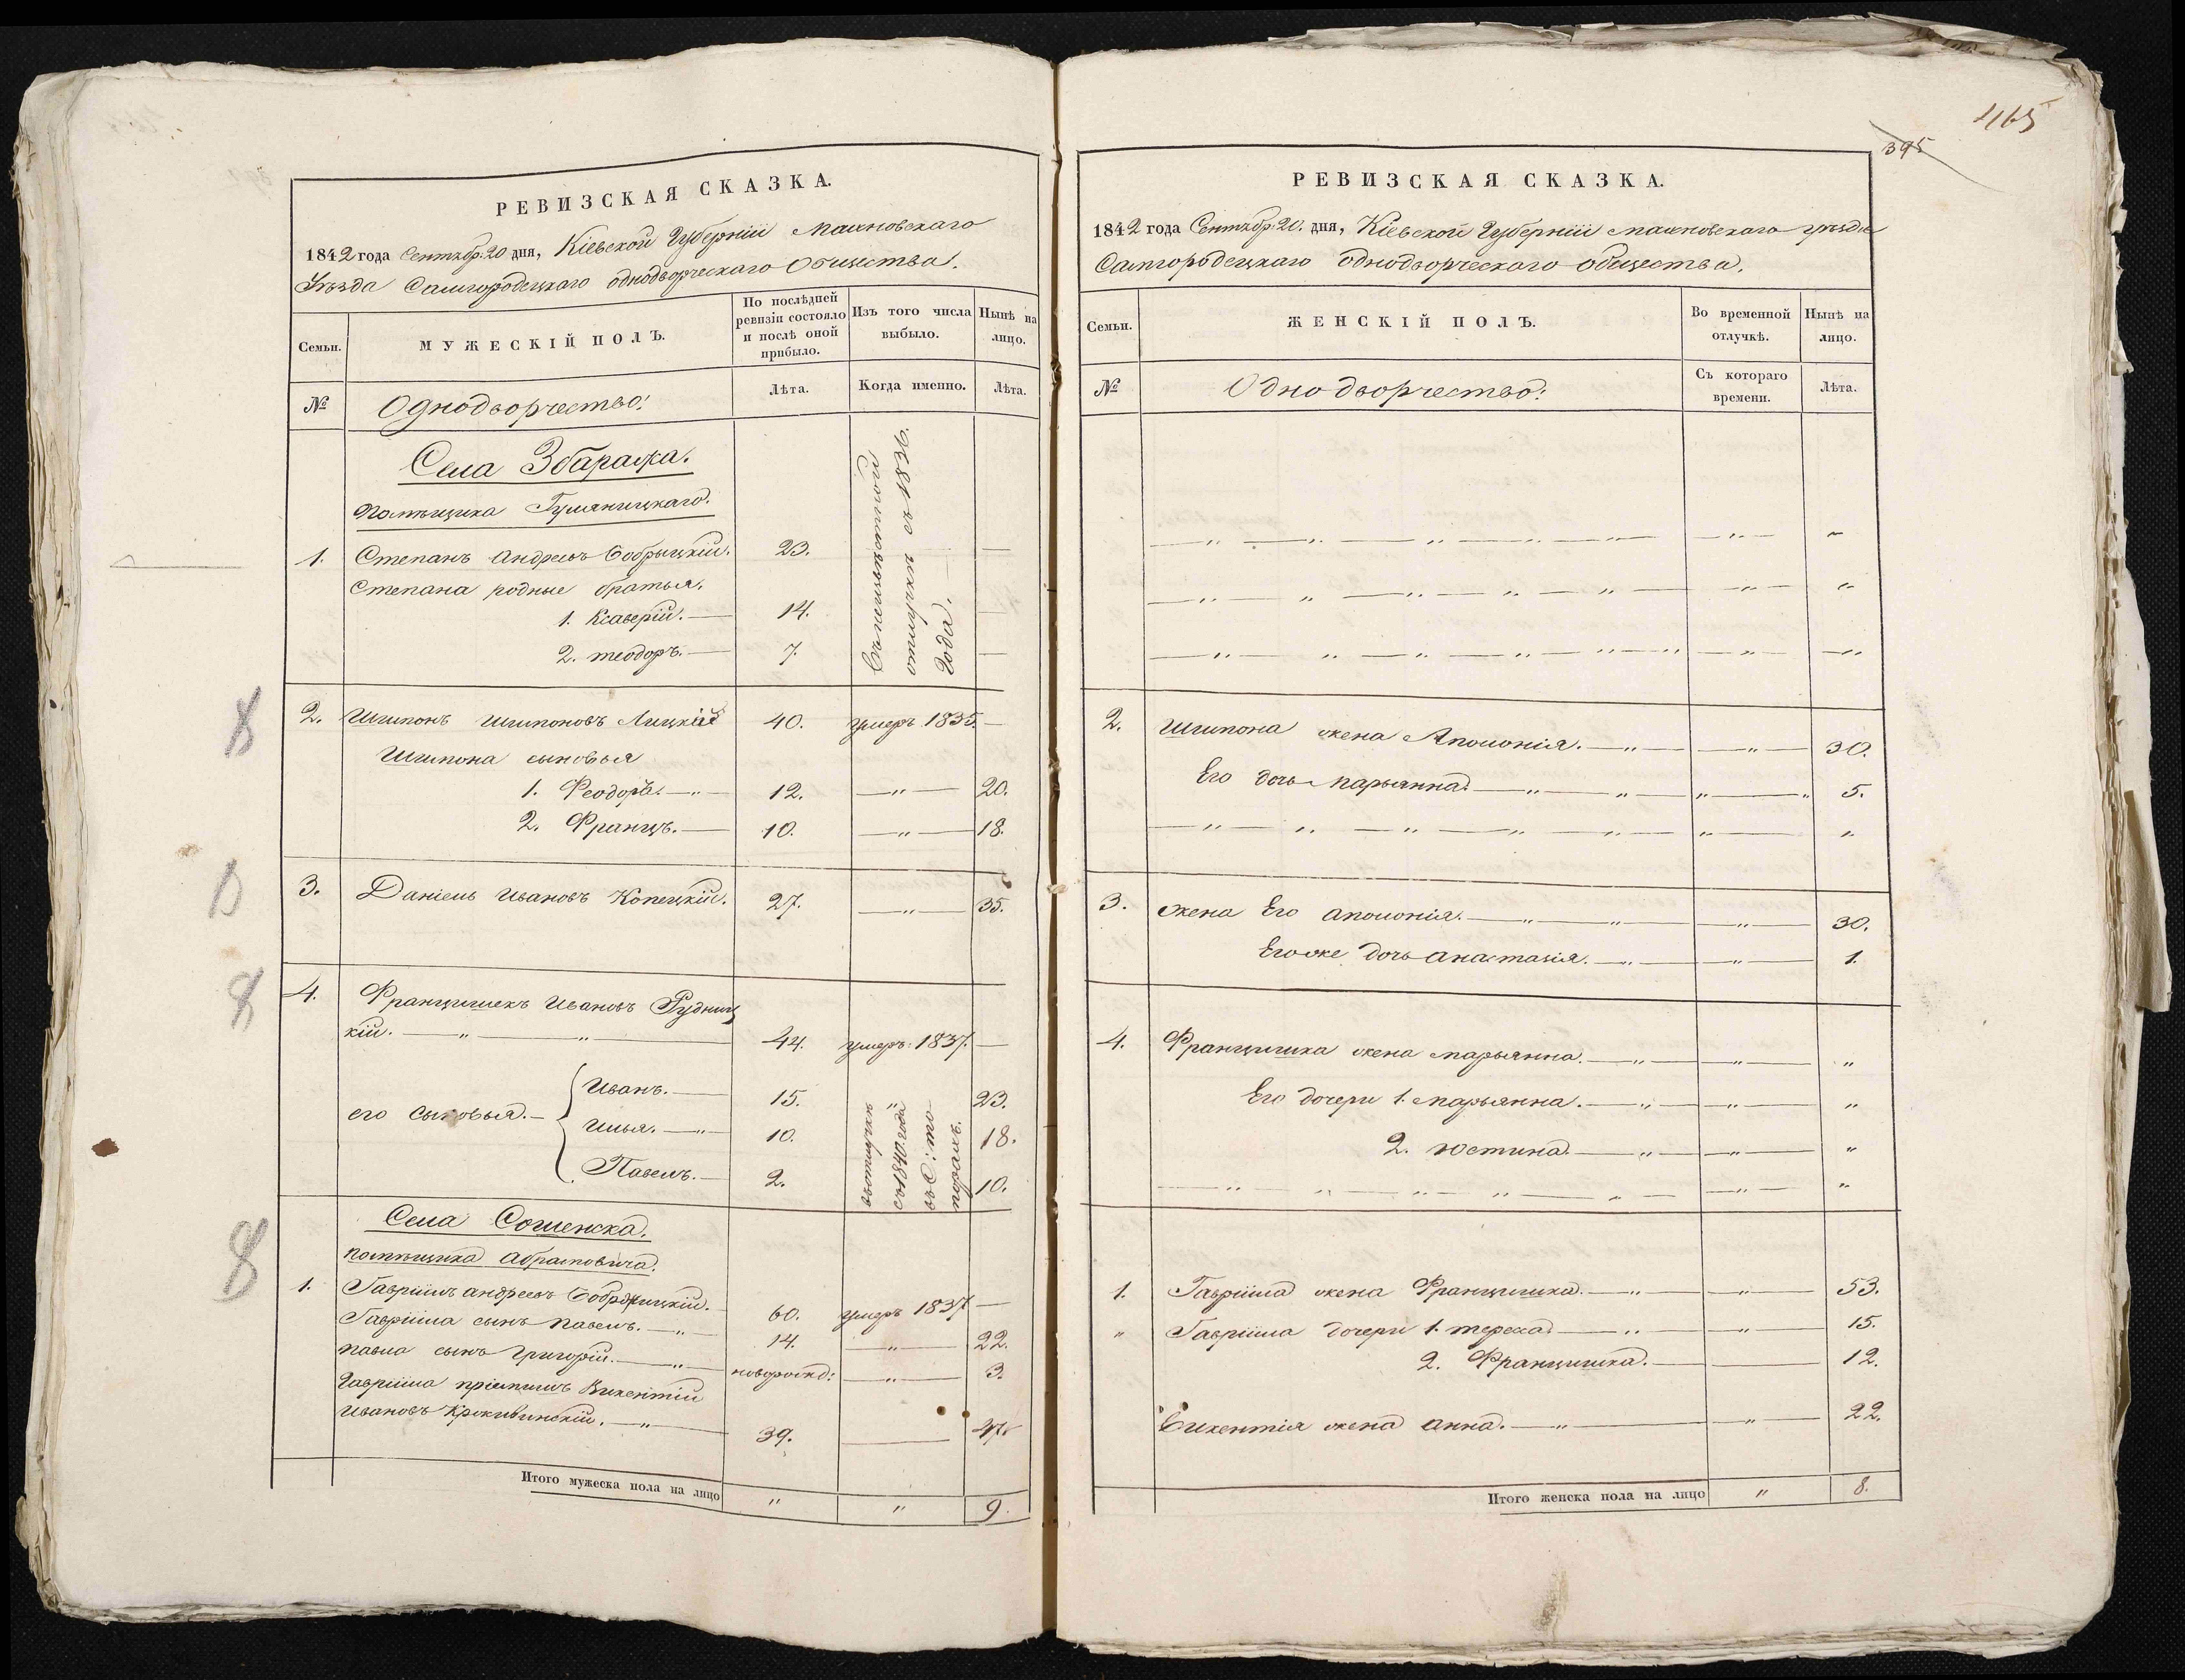 РЕВИЗСКАЯ СКАЗКА.
1842 года Сентябр. 20 дня, Кіевской Губерніи Махновскаго
Уѣзда Самгородецкаго однодворческаго Общества.
Семьи.
МУЖЕСКІЙ ПОЛЪ.
По послѣдней ревизіи состояло и послѣ оной прибыло.
Изъ того числа выбыло.
Нынѣ на лицо.
№
Однодворчество:
Лѣта.
Когда именно.
Лѣта.
Села Збаража.
Помѣщика
1. Степанъ Андреевъ 23. —
Степана родные братья.
1. Ксаверій. — 14. —
2. теодоръ. — 7. —
отлучкѣ съ 1836.
Года.
2. Шимонъ Шимоновъ Лицкій 40. умеръ 1835. —
Шимона сыновья
1. Феодоръ. — " — 12. — " — 20.
2. Францъ. — 10. — " — 18.
3. Даніель Ивановъ Копецкій. 27. — " — 35.
4. Францишекъ Ивановъ Рудниц
кій. — " — " — 44. умеръ 1837. —
его сыновья. — Иванъ. — 15. " 23.
Илья. — " — 10. 18.
Павелъ. — 2. 10.
въ отлучкѣ
съ 1840. года
Села Сошенска.
помѣщика Абрамовича.
1. Гавріилъ андреевъ 60. умеръ 1837 —
Гавріила сынъ павелъ. — " — 14. — " — 22.
павла сынъ Григорій. — " — новорожд: — " — 3.
Гавріила пріемышъ Викентій
Ивановъ — " — 39. — 47
Итого мужеска пола на лицо " " 9.
465
395
РЕВИЗСКАЯ СКАЗКА.
1842 года Сентябр. 20. дня, Кіевской Губерніи Махновскаго уѣзда
Самгородецкаго однодворческаго общества.
Семьи.
ЖЕНСКІЙ ПОЛЪ.
Во временной отлучкѣ.
Нынѣ на лицо.
№
Однодворчество:
Съ котораго времени.
Лѣта.
2. Шимона жена Аполонія. — " — — " — 30.
Его дочь Марьянна. — " — " — " — " 5.
3. Жена Его аполонія. — " — " — — " — 30.
Егоже дочь анастазія. — " — — " — 1.
4. Францишка жена марьянна. — " — — " — "
Его дочери 1. марьянна. — " — — " — "
2. юстина. — " — — " — "
1. Гавріила жена Францишка. — " — — " — 53.
" Гавріила дочери 1. тереса. — " — — " — 15.
2. Францишка. — — 12.
Викентія жена анна. — " — — " — 22.
Итого женска пола на лицо " 8.